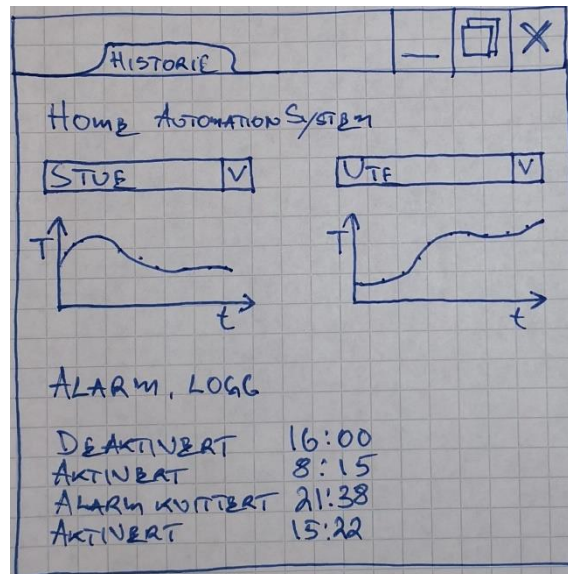 HISTORIE
HOME AUTOMATION SYSTEM
STUE V UTE V
T T
t t
ALARM, LOGG
DEAKTIVERT 16:00
AKTIVERT 8:15
ALARM KVITTERT 21:38
AKTIVERT 15:22